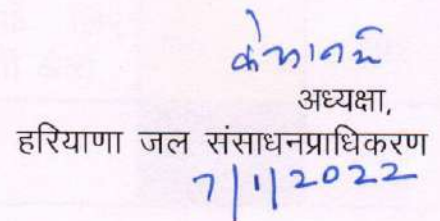 अध्यक्षा,
हरियाणा जल संसाधनप्राधिकरण
7/1/2022